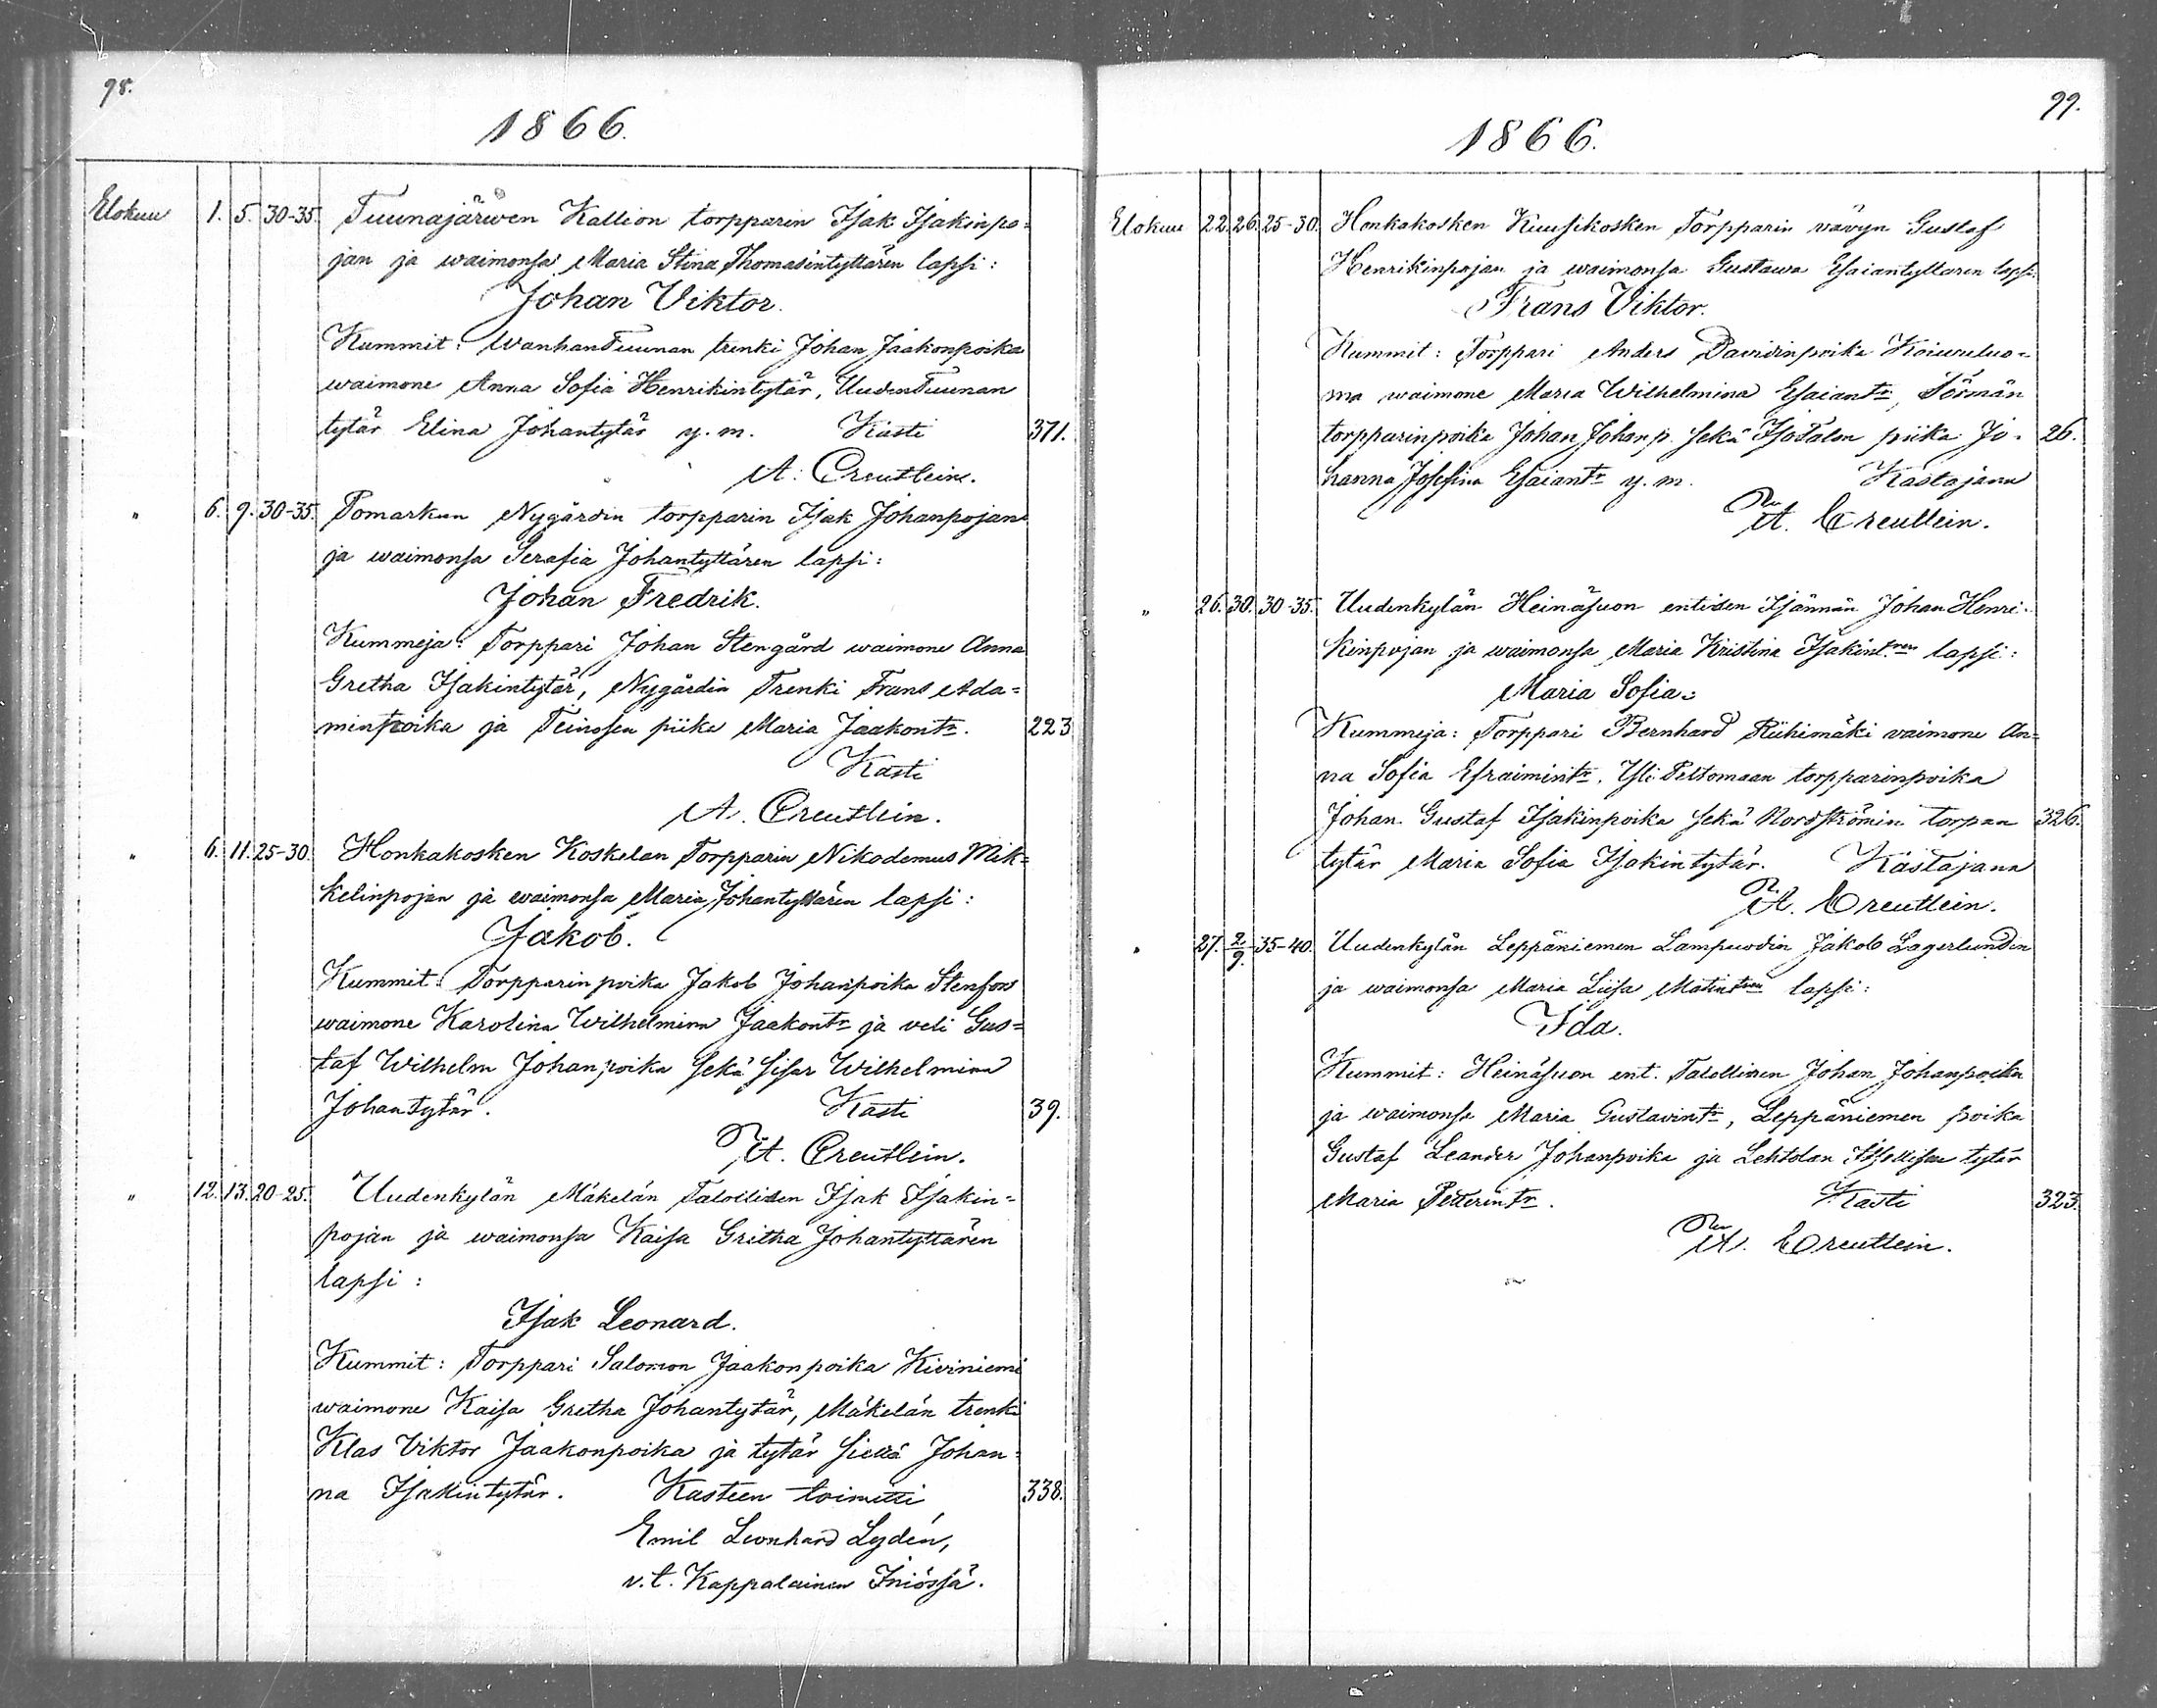 98.
1866.
Elokuu 1. 5. 30-35. Tuunajärwen Kallion torpparin Isak Isakinpo-
jan ja waimonsa Maria Stina Thomasintyttären lapsi:
Johan Viktor.
Kummit: WanhanTuunan trenki Johan Jaakonpoika
waimone Anna Sofia Henrikintytär, UudenTuunan
tytär Elina Johantytär y.m. Kasti 371.
A. Creutlein.
" 6. 9. 30-35. Pomarkun Nygårdin torpparin Isak Johanpojan
ja waimonsa Serafia Johantyttären lapsi:
Johan Fredrik.
Kummeja: Torppari Johan Stengård waimone Anna
Gretha Isakintytär, Nygårdin Trenki Frans Ada-
minpoika ja piika Maria Jaakontr. 223
Kasti
A. Creutlein.
" 6. 11. 25-30. Honkakosken Koskelan Torpparin Nikodemus Mik-
kelinpojan ja waimonsa Maria Johantyttären lapsi:
Jakob.
Kummit: Torpparin poika Jakob Johanpoika Stenfors
waimone Karolina Wilhelmina Jaakontr ja veli Gus-
taf Wilhelm Johanpoika sekä sisar Wilhelmina
Johantytär. Kasti 39.
A. Creutlein.
" 12. 13. 20-25. Uudenkylän Mäkelän Talollisen Isak Isakin-
pojan ja waimonsa Kaisa Gretha Johantyttären
lapsi:
Isak Leonard.
Kummit: Torppari Salomon Jaakonpoika Kiviniemi
waimone Kaisa Gretha Johantytär, Mäkelän trenki
Klas Viktor Jaakonpoika ja tytär sieltä Johan-
na Isakintytär. Kasteen toimitti 338.
Emil Leonhard Lydén,
v.t. Kappalainen Iniössä.
99.
1866.
Elokuu 22. 26. 25-30. Honkakosken Kuusikosken Torpparin vävyn Gustaf
Henrikinpojan ja waimonsa Gustawa Esaiantyttären lapsi
Frans Viktor.
Kummit: Torppari Anders Davidinpoika Koiwuluo-
ma waimone Maria Wilhelmina Esaiantr, Törmän
torpparinpoika Johan Johanp. sekä IsoTalon piika Jo- 26.
hanna Josefina Esaiantr y.m. Kastajana
A. Creutlein.
" 26. 30. 30-35. Uudenkylän Heinäsuon entisen Isännän Johan Henri-
kinpojan ja waimonsa Maria Kristina Isakint:ren lapsi:
Maria Sofia.
Kummeja: Torppari Bernhard Riihimäki vaimone An-
na Sofia Efraimintr. Yli Peltomaan torpparinpoika
Johan Gustaf Isakinpoika sekä Nordströmin torpan 326.
tytär Maria Sofia Isakintytär. Kastajana
A. Creutlein.
" 27. 2/9. 35-40. Uudenkylän Leppäniemen Lampuodin Jakob Lagerlundin
ja waimonsa Maria Liisa Matintren lapsi:
Ida.
Kummit: Heinäsuon ent. Talollinen Johan Johanpoika
ja waimonsa Maria Gustavintr, Leppäniemen poika
Gustaf Leander Johanpoika ja Lehtolan Itsellisen tytär
Maria Petterintr. Kasti 323.
A. Creutlein.